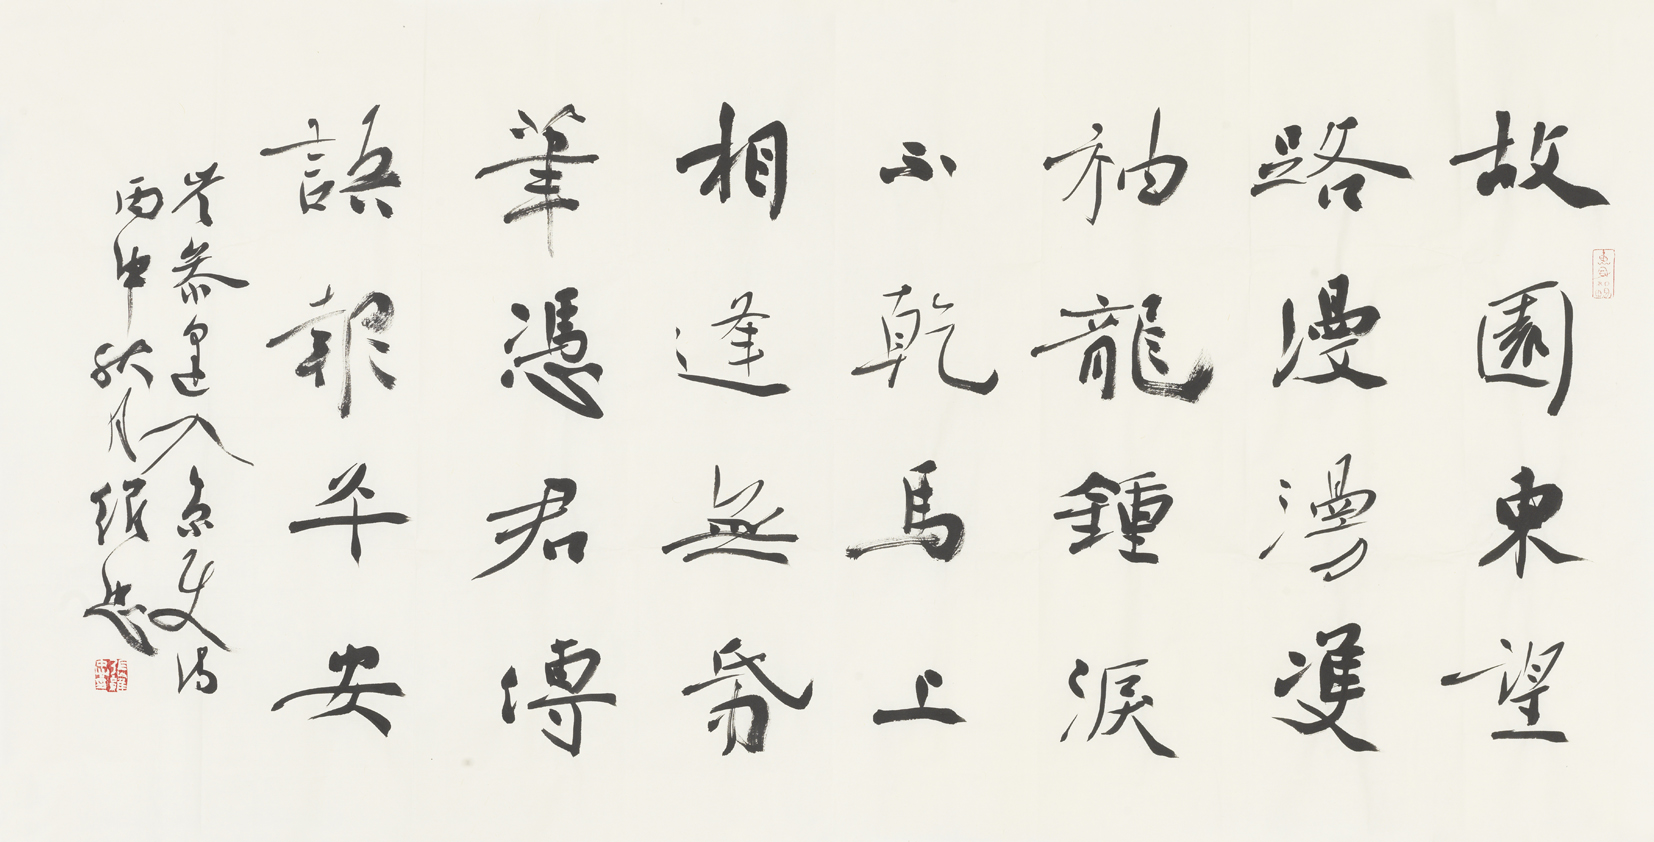 故園東望
路漫漫雙
袖龍鍾淚
不乾馬上
相逢無紙
筆憑君傳
語報平安
岑參逢入京使詩
丙申秋月紹忠